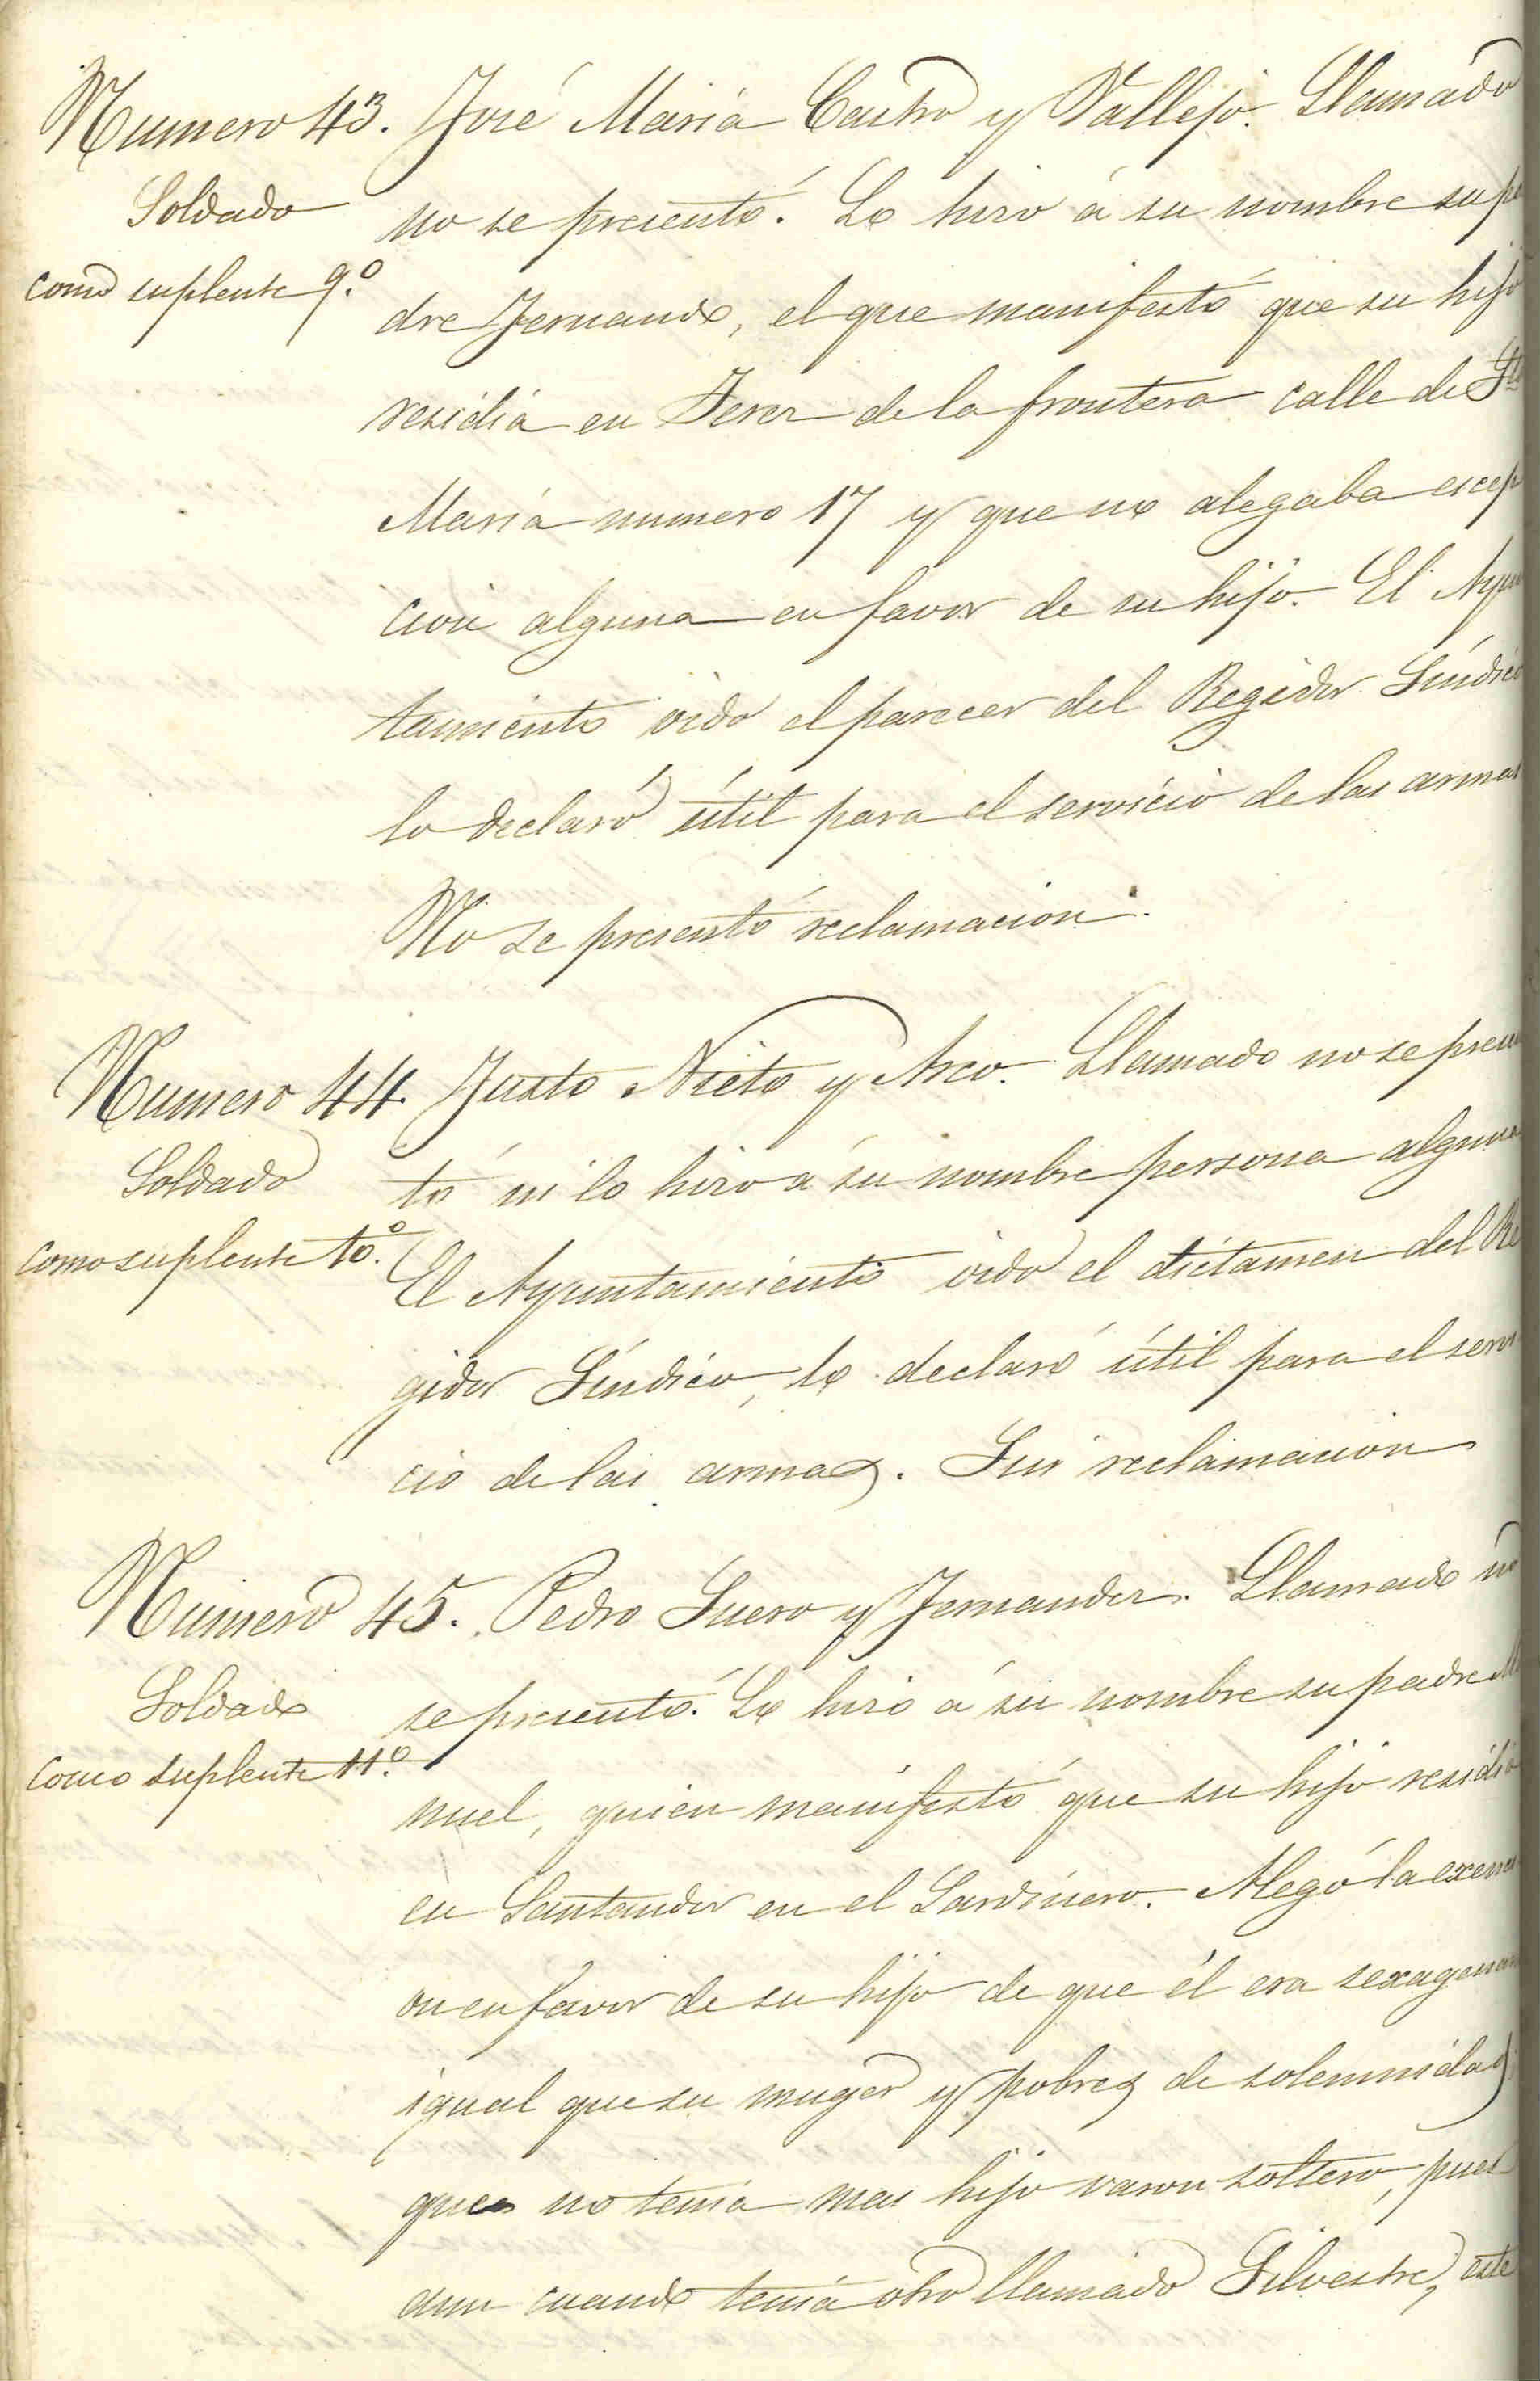 Numero 43. José María Castro y Vallejo. Llamado
Soldado
como suplente 9.º
no se presentó. Lo hizo á su nombre su pa
dre Fernando, el que manifestó que su hijo
residia en Jerez de la frontera calle de Sta
María numero 17 y que no alegaba escep
cion alguna en favor de su hijo. El Ayun
tamiento oido el parecer del Regidor Síndico
lo declaró útil para el servicio de las armas
No se presentó reclamacion.
Numero 44. Justo Nieto y Arco. Llamado no se presen
Soldado
como suplente 10.º
tó ni lo hizo á su nombre persona alguna
El Ayuntamiento oido el dictamen del Re
gidor Síndico, lo declaró útil para el servi
cio de las armas. Sin reclamacion
Numero 45. Pedro Suero y Fernandez. Llamado no
Soldado
como suplente 11.º
se presentó. Lo hizo á su nombre su padre Ma
nuel, quien manifestó que su hijo residia
en Santander en el Sardinero. Alegó la exenci
on en favor de su hijo de que él era sexagenario
igual que su muger y pobres de solemnidad
que no tenía mas hijo varon soltero, pues
aun cuando tenía otro llamado Silvestre, este